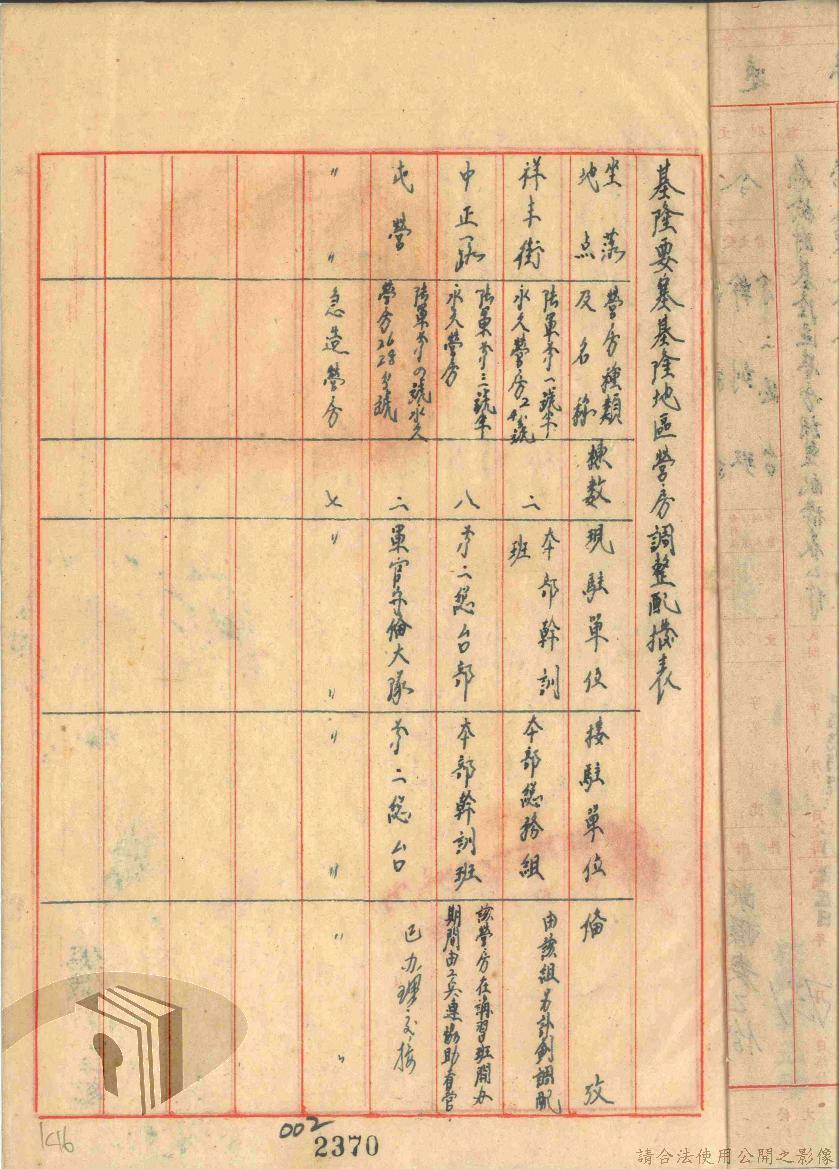 基隆要塞基隆地區營房調整配撥表
坐落地点
營房種類及名称
棟数
現駐單位
接駐單位
備攷
祥丰街
陸軍第一號半永久營房24號
二
本部幹訓班
本部總務組
由該組另計劃調配
中正路
陸軍第三號半永久營房
八
第二總台部
本部幹訓班
該營房在講習班開办期間由工兵連協助看管
屯營
陸軍第四號永久營房2628号號
二
軍官守備大隊
第二總台
已办理交接
〃 〃
急造營房
七
〃 〃
〃 〃
〃 〃
002
2370
請合法使用公開之影像